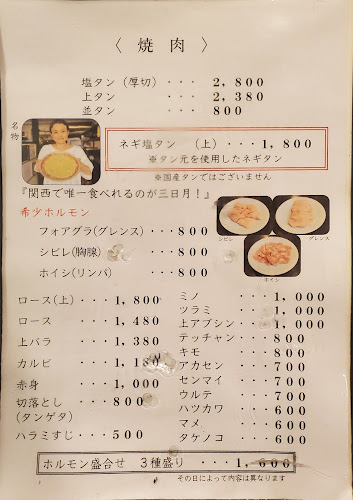 〈 焼肉 〉
塩タン(厚切)・・・2,800
上タン ・・・2,380
並タン ・・・ 800
名物
ネギ塩タン (上)・・・1,800
※タン元を使用したネギタン
※国産タンではございません
『関西で唯一食べれるのが三日月！』
希少ホルモン
フォアグラ(グレンス)・・・800
シビレ(胸腺) ・・・800
ホイシ(リンパ) ・・・800
シビレ
グレンス
ホイシ
ロース(上)・・・1,800
ロース ・・・1,480
上バラ ・・・1,380
カルビ ・・・1,180
赤身 ・・・1,000
切落とし ・・・800
(タンゲタ)
ハラミすじ・・・500
ミノ ・・・1,000
ツラミ ・・・1,000
上アブシン・・・1,000
テッチャン・・・800
キモ ・・・800
アカセン ・・・700
センマイ ・・・700
ウルテ ・・・700
ハツカワ ・・・600
マメ ・・・600
タケノコ ・・・600
ホルモン盛合せ 3種盛り ・・・1,600
その日によって内容は異なります